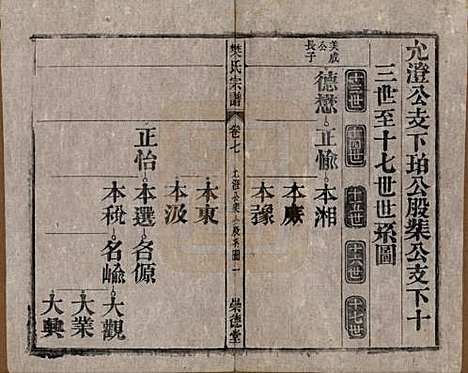 允澄公支下珀公股棐公支下十
三世至十七世世系圖
十三世
十四世
十五世
十六世
十七世
美成公長子
德懋
正愉
本湘
本厫
本豫
樊氏宗譜
卷七
崇德堂
本東
本汲
正怡
本選
名源
本税
名崳
大觀
大業
大興